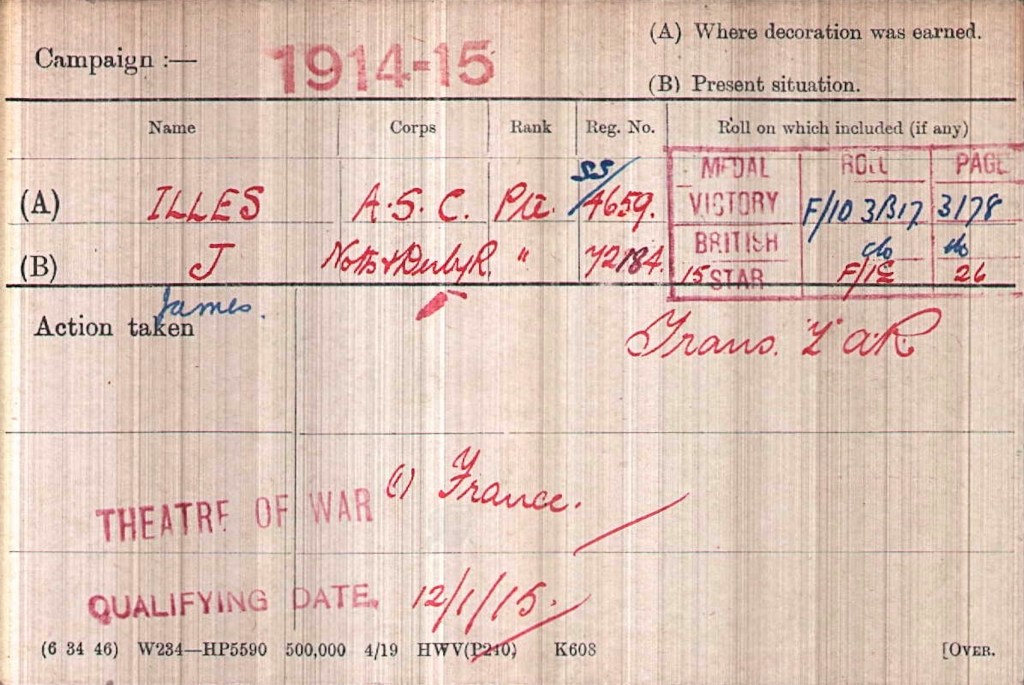 (A) Where decoration was earned.
Campaign :— 1914-15
(B) Present situation.
Name Corps Rank Reg. No. Roll on which included (if any)
SS/ MEDAL ROLL PAGE
(A) ILLES A.S.C. Pte. 4659. VICTORY F/10 3B17 3178
(B) J Notts & Derby R. " 72184. BRITISH do do
James. 15 STAR F/1E 26
Action taken Trans. Z a.R
THEATRE OF WAR (1) France.
QUALIFYING DATE. 12/1/15.
(6 34 46) W234—HP5590 500,000 4/19 HWV(P240) K608 [OVER.